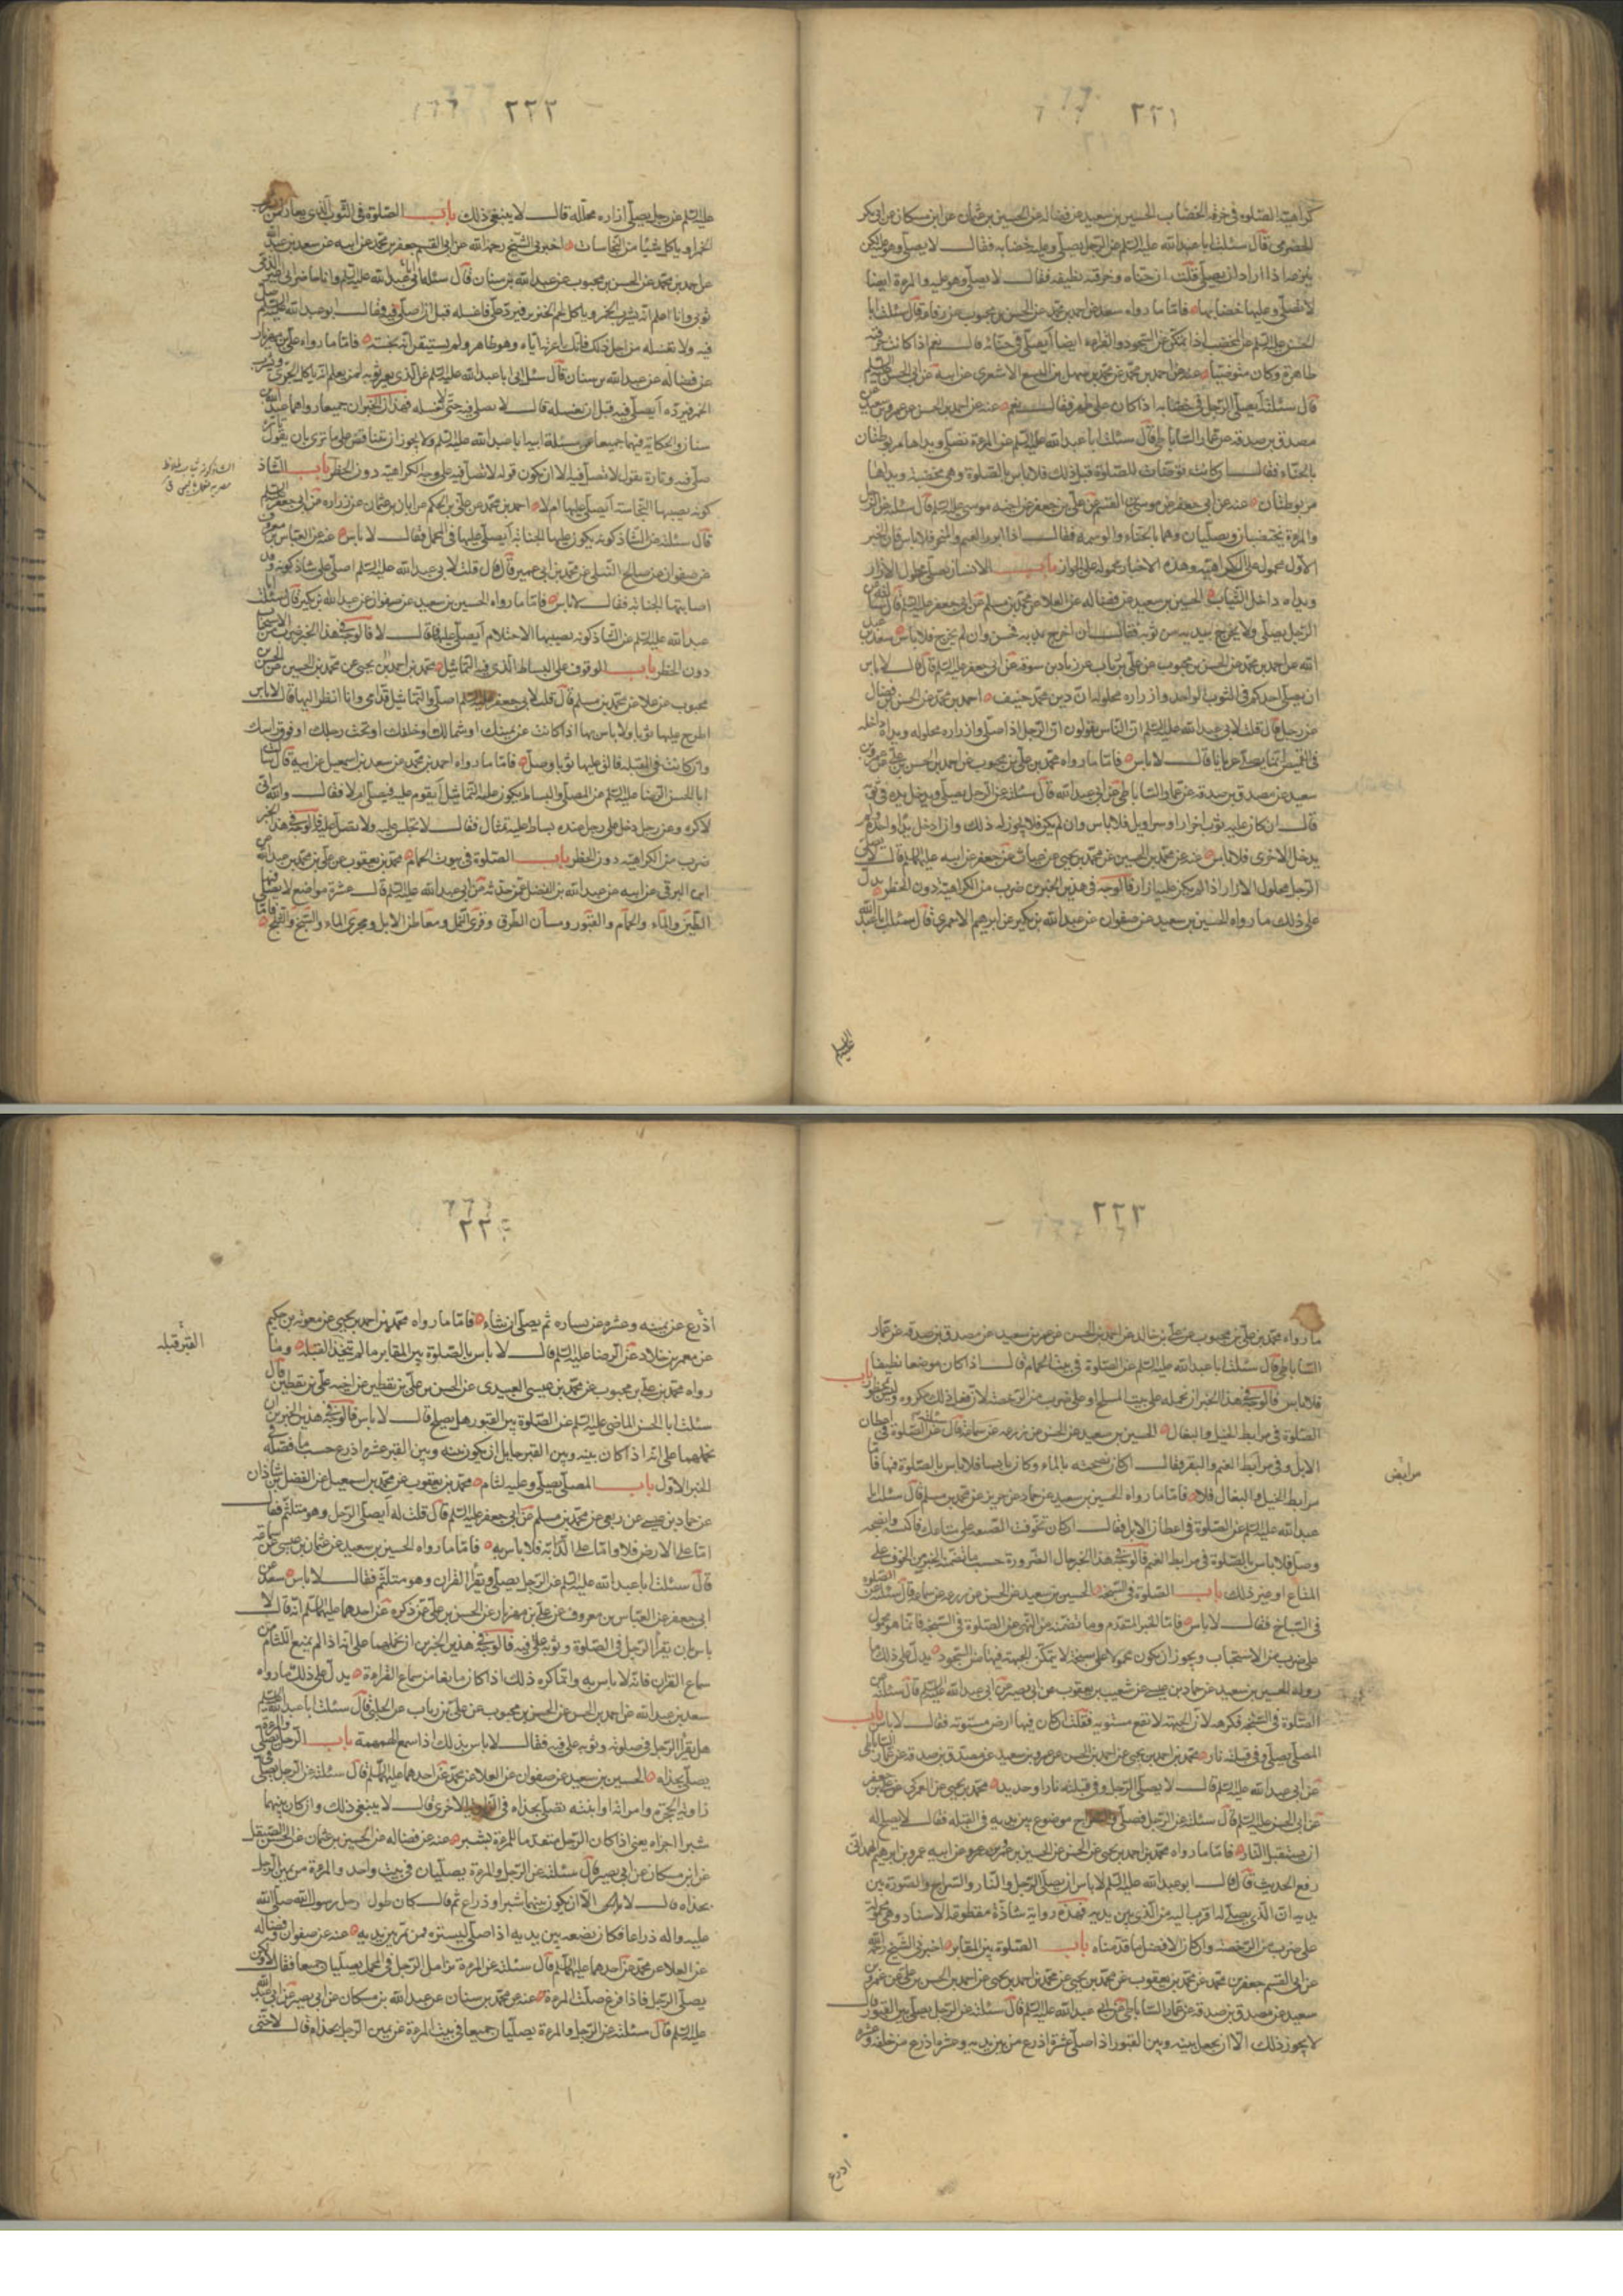 ٢٢١
كراهية الصلوة في خرقة الخضاب الحسين بن سعيد عن فضاله عن الحسين بن عثمان عن ابن مسكان عن ابي بكر
الحضرمي قال سئلت ابا عبد الله عليه السلم عن الرجل يصلي وعليه خضابه فقال لا يصلي وهو عليه ولكن
ينزعه اذا اراد ان يصلي قلت ان حناه وخرقته نظيفه فقال لا يصلي وهو عليه والمرءة ايضا
لا تصلي وعليها خضابها فاما ما رواه سعد عن احمد بن محمد عن الحسن بن محبوب عن رفاعه قال سئلت ابا
الحسن عليه السلم عن المختضب اذا تمكن من السجود والقراءة ايضا أيصلي في حنائه قال نعم اذا كانت خرقته
طاهرة وكان متوضيا عنه عن احمد بن محمد عن محمد بن سهل بن اليسع الاشعري عن ابيه عن ابي الحسن عليه السلم
قال سئلته أيصلي الرجل في خضابه اذا كان على طهر فقال نعم عنه عن احمد بن الحسن عن عمرو بن سعيد عن
مصدق بن صدقه عن عمار الساباطي قال سئلت ابا عبد الله عليه السلم عن المرءة تصلي ويداها مربوطتان
بالحناء فقال ان كانت توضات للصلوة قبل ذلك فلا باس بالصلوة وهي مختضبة ويداها
مربوطتان عنه عن ابي جعفر عن موسى بن القسم عن علي بن جعفر عن اخيه موسى عليه السلم قال سئلته عن الرجل
والمرءة يختضبان أيصليان وهما بالحناء والوسمه فقال اذا ابرز الفم والمنخر فلا باس فان الخبر
الاول محمول على الكراهية وهذه الاخبار محمولة على الجواز باب الانسان يصلي محلول الازرار
ويداه داخل الثياب الحسين بن سعيد عن فضاله عن العلا عن محمد بن مسلم عن ابي جعفر عليه السلم قال سئلته عن
الرجل يصلي ولا يخرج يديه من ثوبه فقال ان اخرج يديه فحسن وان لم يخرج فلا باس سعد بن عبد
الله عن احمد بن محمد عن الحسن بن محبوب عن علي بن رئاب عن زياد بن سوقه عن ابي جعفر عليه السلم قال لا باس
ان يصلي احدكم في الثوب الواحد وازراره محلوله ان دين محمد حنيف احمد بن محمد عن الحسن بن فضال
عن رجل قال قلت لابي عبد الله عليه السلم ان الناس يقولون ان الرجل اذا صلى وازراره محلوله ويداه داخله
في القميص انما يصلي عريانا قال لا باس فاما ما رواه محمد بن علي بن محبوب عن احمد بن الحسن بن علي عن عمرو بن
سعيد عن مصدق بن صدقه عن عمار الساباطي عن ابي عبد الله قال سئلته عن الرجل يصلي ويدخل يده في ثوبه
قال ان كان عليه ثوب اخر ازار او سراويل فلا باس وان لم يكن فلا يجوز له ذلك وان ادخل يدا واحدة ولم
يدخل الاخرى فلا باس عنه عن محمد بن الحسين عن محمد بن يحيى عن غياث عن جعفر عن ابيه عليهما السلم قال لا يصلي
الرجل محلول الازرار اذا لم يكن عليه ازار فالوجه في هذين الخبرين ضرب من الكراهية دون الحظر يدل
على ذلك ما رواه الحسين بن سعيد عن صفوان عن عبد الله بن بكير عن ابراهيم الاحمري قال سئلت ابا عبد الله
عليه السلم
٢٢٢
عليه السلم عن رجل يصلي ازراره محلله قال لا ينبغي ذلك باب الصلوة في الثوب الذي يعار لمن يشرب
الخمر او ياكل شيئا من النجاسات اخبرني الشيخ رحمه الله عن ابي القسم جعفر بن محمد عن ابيه عن سعد بن عبد الله
عن احمد بن محمد عن الحسن بن محبوب عن عبد الله بن سنان قال سئل ابي ابا عبد الله عليه السلم وانا حاضر اني اعير الذمي
ثوبي وانا اعلم انه يشرب الخمر وياكل لحم الخنزير فيرده علي فاغسله قبل ان اصلي فيه فقال ابو عبد الله عليه السلم صل
فيه ولا تغسله من اجل ذلك فانك اعرته اياه وهو طاهر ولم تستيقن انه نجسه فاما ما رواه علي بن مهزيار
عن فضاله عن عبد الله بن سنان قال سئل ابي ابا عبد الله عليه السلم عن الذي يعير ثوبه لمن يعلم انه ياكل الجري ويشرب
الخمر فيرده أيصلي فيه قبل ان يغسله قال لا يصلي فيه حتى يغسله فهذان الخبران جميعا رواهما عبد الله بن
سنان والحكاية فيهما جميعا عن مسئلة ابيه ابا عبد الله عليه السلم ولا يجوز ان يتناقض على ما ترى بان يقول تارة
صل فيه وتارة يقول لا تصل فيه الا ان يكون قوله لا تصل فيه على وجه الكراهية دون الحظر باب الشاذ
كونه يصيبها النجاسة أيصلى عليها ام لا احمد بن محمد عن علي بن الحكم عن ابان بن عثمان عن زراره عن ابي جعفر عليه السلم
قال سئلته عن الشاذكونه يكون عليها الجنابه أيصلى عليها في المحمل فقال لا باس عنه عن العباس بن معروف
عن صفوان عن صالح النيلي عن محمد بن ابي عمير قال قلت لابي عبد الله عليه السلم اصلي على شاذكونه وقد
اصابتها الجنابة فقال لا باس فاما ما رواه الحسين بن سعيد عن صفوان عن عبد الله بن بكير قال سئلت ابا
عبد الله عليه السلم عن الشاذكونه يصيبها الاحتلام أيصلى عليها قال لا فالوجه في هذا الخبر ضرب من الاستحباب
دون الحظر باب الوقوف على البساط الذي فيه التماثيل محمد بن احمد بن يحيى عن محمد بن الحسين عن الحسن بن
محبوب عن علا عن محمد بن مسلم قال قلت لابي جعفر عليه السلم اصلي والتماثيل قدامي وانا انظر اليها قال لا باس
اطرح عليها ثوبا ولا باس بها اذا كانت عن يمينك او شمالك او خلفك او تحت رجلك او فوق راسك
وان كانت في القبله فالق عليها ثوبا وصل فاما ما رواه احمد بن محمد عن سعد بن اسمعيل عن ابيه قال سئلت
ابا الحسن الرضا عليه السلم عن المصلي والبساط يكون عليه التماثيل أيقوم عليه فيصلي ام لا فقال والله اني
لاكره وعن رجل دخل على رجل عنده بساط عليه تمثال فقال لا تجلس عليه ولا تصل عليه فالوجه في هذا الخبر
ضرب من الكراهية دون الحظر باب الصلوة في بيوت الحمام محمد بن يعقوب عن علي بن محمد بن عبد الله عن
ابن البرقي عن ابيه عن عبد الله بن الفضل عمن حدثه عن ابي عبد الله عليه السلم قال عشرة مواضع لا يصلى فيها
الطين والماء والحمام والقبور ومسان الطرق وقرى النمل ومعاطن الابل ومجرى الماء والسبخ والثلج فاما
٢٢٣
ما رواه محمد بن علي بن محبوب عن علي بن خالد عن احمد بن الحسن عن عمرو بن سعيد عن مصدق بن صدقه عن عمار
الساباطي قال سئلت ابا عبد الله عليه السلم عن الصلوة في بيت الحمام قال اذا كان موضعا نظيفا
فلا باس فالوجه في هذا الخبر ان نحمله على بيت المسلخ او على ضرب من الرخصة لان فعل ذلك مكروه وليس بمحظور باب
الصلوة في مرابط الخيل والبغال الحسين بن سعيد عن الحسن عن زرعه عن سماعة قال سئلته عن الصلوة في اعطان
الابل وفي مرابط الغنم والبقر فقال ان كان نضحته بالماء وكان يابسا فلا باس بالصلوة فيها فاما
مرابط الخيل والبغال فلا فاما ما رواه الحسين بن سعيد عن حماد عن حريز عن محمد بن مسلم قال سئلت ابا
مرابض
عبد الله عليه السلم عن الصلوة في اعطان الابل فقال ان كان تخوفت الضيعه على متاعك فاكنسه وانضحه
وصل فلا باس بالصلوة في مرابط الغنم فالوجه في هذا الخبر حال الضرورة حسب ما تضمنه الخبر من الخوف على
المتاع او غير ذلك باب الصلوة في السبخه الحسين بن سعيد عن الحسن عن زرعه عن سماعة قال سئلته عن الصلوة
في السباخ فقال لا باس فاما الخبر المتقدم وما تضمنه من النهي عن الصلوة في السبخه فانما هو محمول
على ضرب من الاستحباب ويجوز ان يكون محمولا على سبخة لا يتمكن الجبهة فيها من السجود يدل على ذلك ما
رواه الحسين بن سعيد عن حماد بن عيسى عن شعيب بن يعقوب عن ابي بصير عن ابي عبد الله عليه السلم قال سئلته عن
الصلوة في السبخه فكرهه لان الجبهة لا تقع مستويه فقلت ان كان فيها ارض مستويه فقال لا باس باب
المصلي يصلي وفي قبلته نار محمد بن احمد بن يحيى عن احمد بن الحسن عن عمرو بن سعيد عن مصدق بن صدقه عن عمار الساباطي
عن ابي عبد الله عليه السلم قال لا يصلي الرجل وفي قبلته نار او حديد محمد بن يحيى عن العمركي عن علي بن جعفر
عن ابي الحسن عليه السلم قال سئلته عن الرجل يصلي والسراج موضوع بين يديه في القبله فقال لا يصلح له
ان يستقبل النار فاما ما رواه محمد بن احمد بن يحيى عن الحسن عن الحسين بن عمرو عن ابيه عمرو بن ابراهيم الهمداني
رفع الحديث قال قال ابو عبد الله عليه السلم لا باس ان يصلي الرجل والنار والسراج والصورة بين
يديه ان الذي يصلي له اقرب اليه من الذي بين يديه فهذه رواية شاذة مقطوعة الاسناد وهي محمولة
على ضرب من الرخصة وان كان الافضل ما قدمناه باب الصلوة بين المقابر اخبرني الشيخ رحمه الله
عن ابي القسم جعفر بن محمد عن محمد بن يعقوب عن محمد بن يحيى عن محمد بن احمد بن يحيى عن احمد بن الحسن بن علي عن عمرو بن
سعيد عن مصدق بن صدقه عن عمار الساباطي عن ابي عبد الله عليه السلم قال سئلته عن الرجل يصلي بين القبور قال
لا يجوز ذلك الا ان يجعل بينه وبين القبور اذا صلى عشرة اذرع من بين يديه وعشرة اذرع من خلفه وعشره
اذرع
٢٢
اذرع عن يمينه وعشره عن يساره ثم يصلي ان شاء فاما ما رواه محمد بن احمد بن يحيى عن معوية بن حكيم
عن معمر بن خلاد عن الرضا عليه السلم قال لا باس بالصلوة بين المقابر ما لم تتخذ القبلة وما
القبر قبله
رواه محمد بن علي بن محبوب عن محمد بن عيسى العبيدي عن الحسن بن علي بن يقطين عن اخيه علي بن يقطين قال
سئلت ابا الحسن الماضي عليه السلم عن الصلوة بين القبور هل يصلح قال لا باس فالوجه في هذين الخبرين ان
نحملهما على انه اذا كان بينه وبين القبر حايل او يكون بينه وبين القبر عشرة اذرع حسب ما فصله في
الخبر الاول باب المصلي يصلي وعليه لثام محمد بن يعقوب عن محمد بن اسمعيل عن الفضل بن شاذان
عن حماد بن عيسى عن ربعي عن محمد بن مسلم عن ابي جعفر عليه السلم قال قلت له أيصلي الرجل وهو متلثم فقال
اما على الارض فلا واما على الدابه فلا باس به فاما ما رواه الحسين بن سعيد عن عثمان بن عيسى عن سماعة
قال سئلت ابا عبد الله عليه السلم عن الرجل يصلي ويقرأ القران وهو متلثم فقال لا باس سعد عن
ابي جعفر عن العباس بن معروف عن علي بن مهزيار عن الحسن بن علي عمن ذكره عن احدهما عليهما السلم انه قال لا
باس بان يقرأ الرجل في الصلوة وثوبه على فيه فالوجه في هذين الخبرين ان نحملهما على انه اذا لم يمنع اللثام من
سماع القران فانه لا باس به وانما كره ذلك اذا كان مانعا من سماع القراءة يدل على ذلك ما رواه
سعد بن عبد الله عن احمد بن الحسن عن الحسن بن محبوب عن علي بن رياب عن الحلبي قال سئلت ابا عبد الله عليه السلم
هل يقرأ الرجل في صلوته وثوبه على فيه فقال لا باس بذلك اذا سمع الهمهمة باب الرجل يصلي والمرءة
يصلي بحذاه الحسين بن سعيد عن صفوان عن العلا عن محمد عن احدهما عليهما السلم قال سئلته عن الرجل يصلي في
زاوية الحجرة وامراته او ابنته تصلي بحذاه في الزاوية الاخرى قال لا ينبغي ذلك وان كان بينهما
شبرا اجزاه يعني اذا كان الرجل متقدما للمرءة بشبر عنه عن فضاله عن الحسين بن عثمان عن الحسن الصيقل
عن ابن مسكان عن ابي بصير قال سئلته عن الرجل والمرءة يصليان في بيت واحد والمرءة عن يمين الرجل
بحذاه قال لا الا ان يكون بينهما شبر او ذراع ثم قال كان طول رحل رسول الله صلى الله
عليه واله ذراعا فكان يضعه بين يديه اذا صلى ليستره ممن يمر بين يديه عنه عن صفوان وفضاله
عن العلا عن محمد عن احدهما عليهما السلم قال سئلته عن المرءة تزامل الرجل في المحمل يصليان جميعا فقال لا ولكن
يصلي الرجل فاذا فرغ صلت المرءة عنه عن محمد بن سنان عن عبد الله بن مسكان عن ابي بصير عن ابي عبد الله
عليه السلم قال سئلته عن الرجل والمرءة يصليان جميعا في بيت المرءة عن يمين الرجل بحذاه قال لا حتى